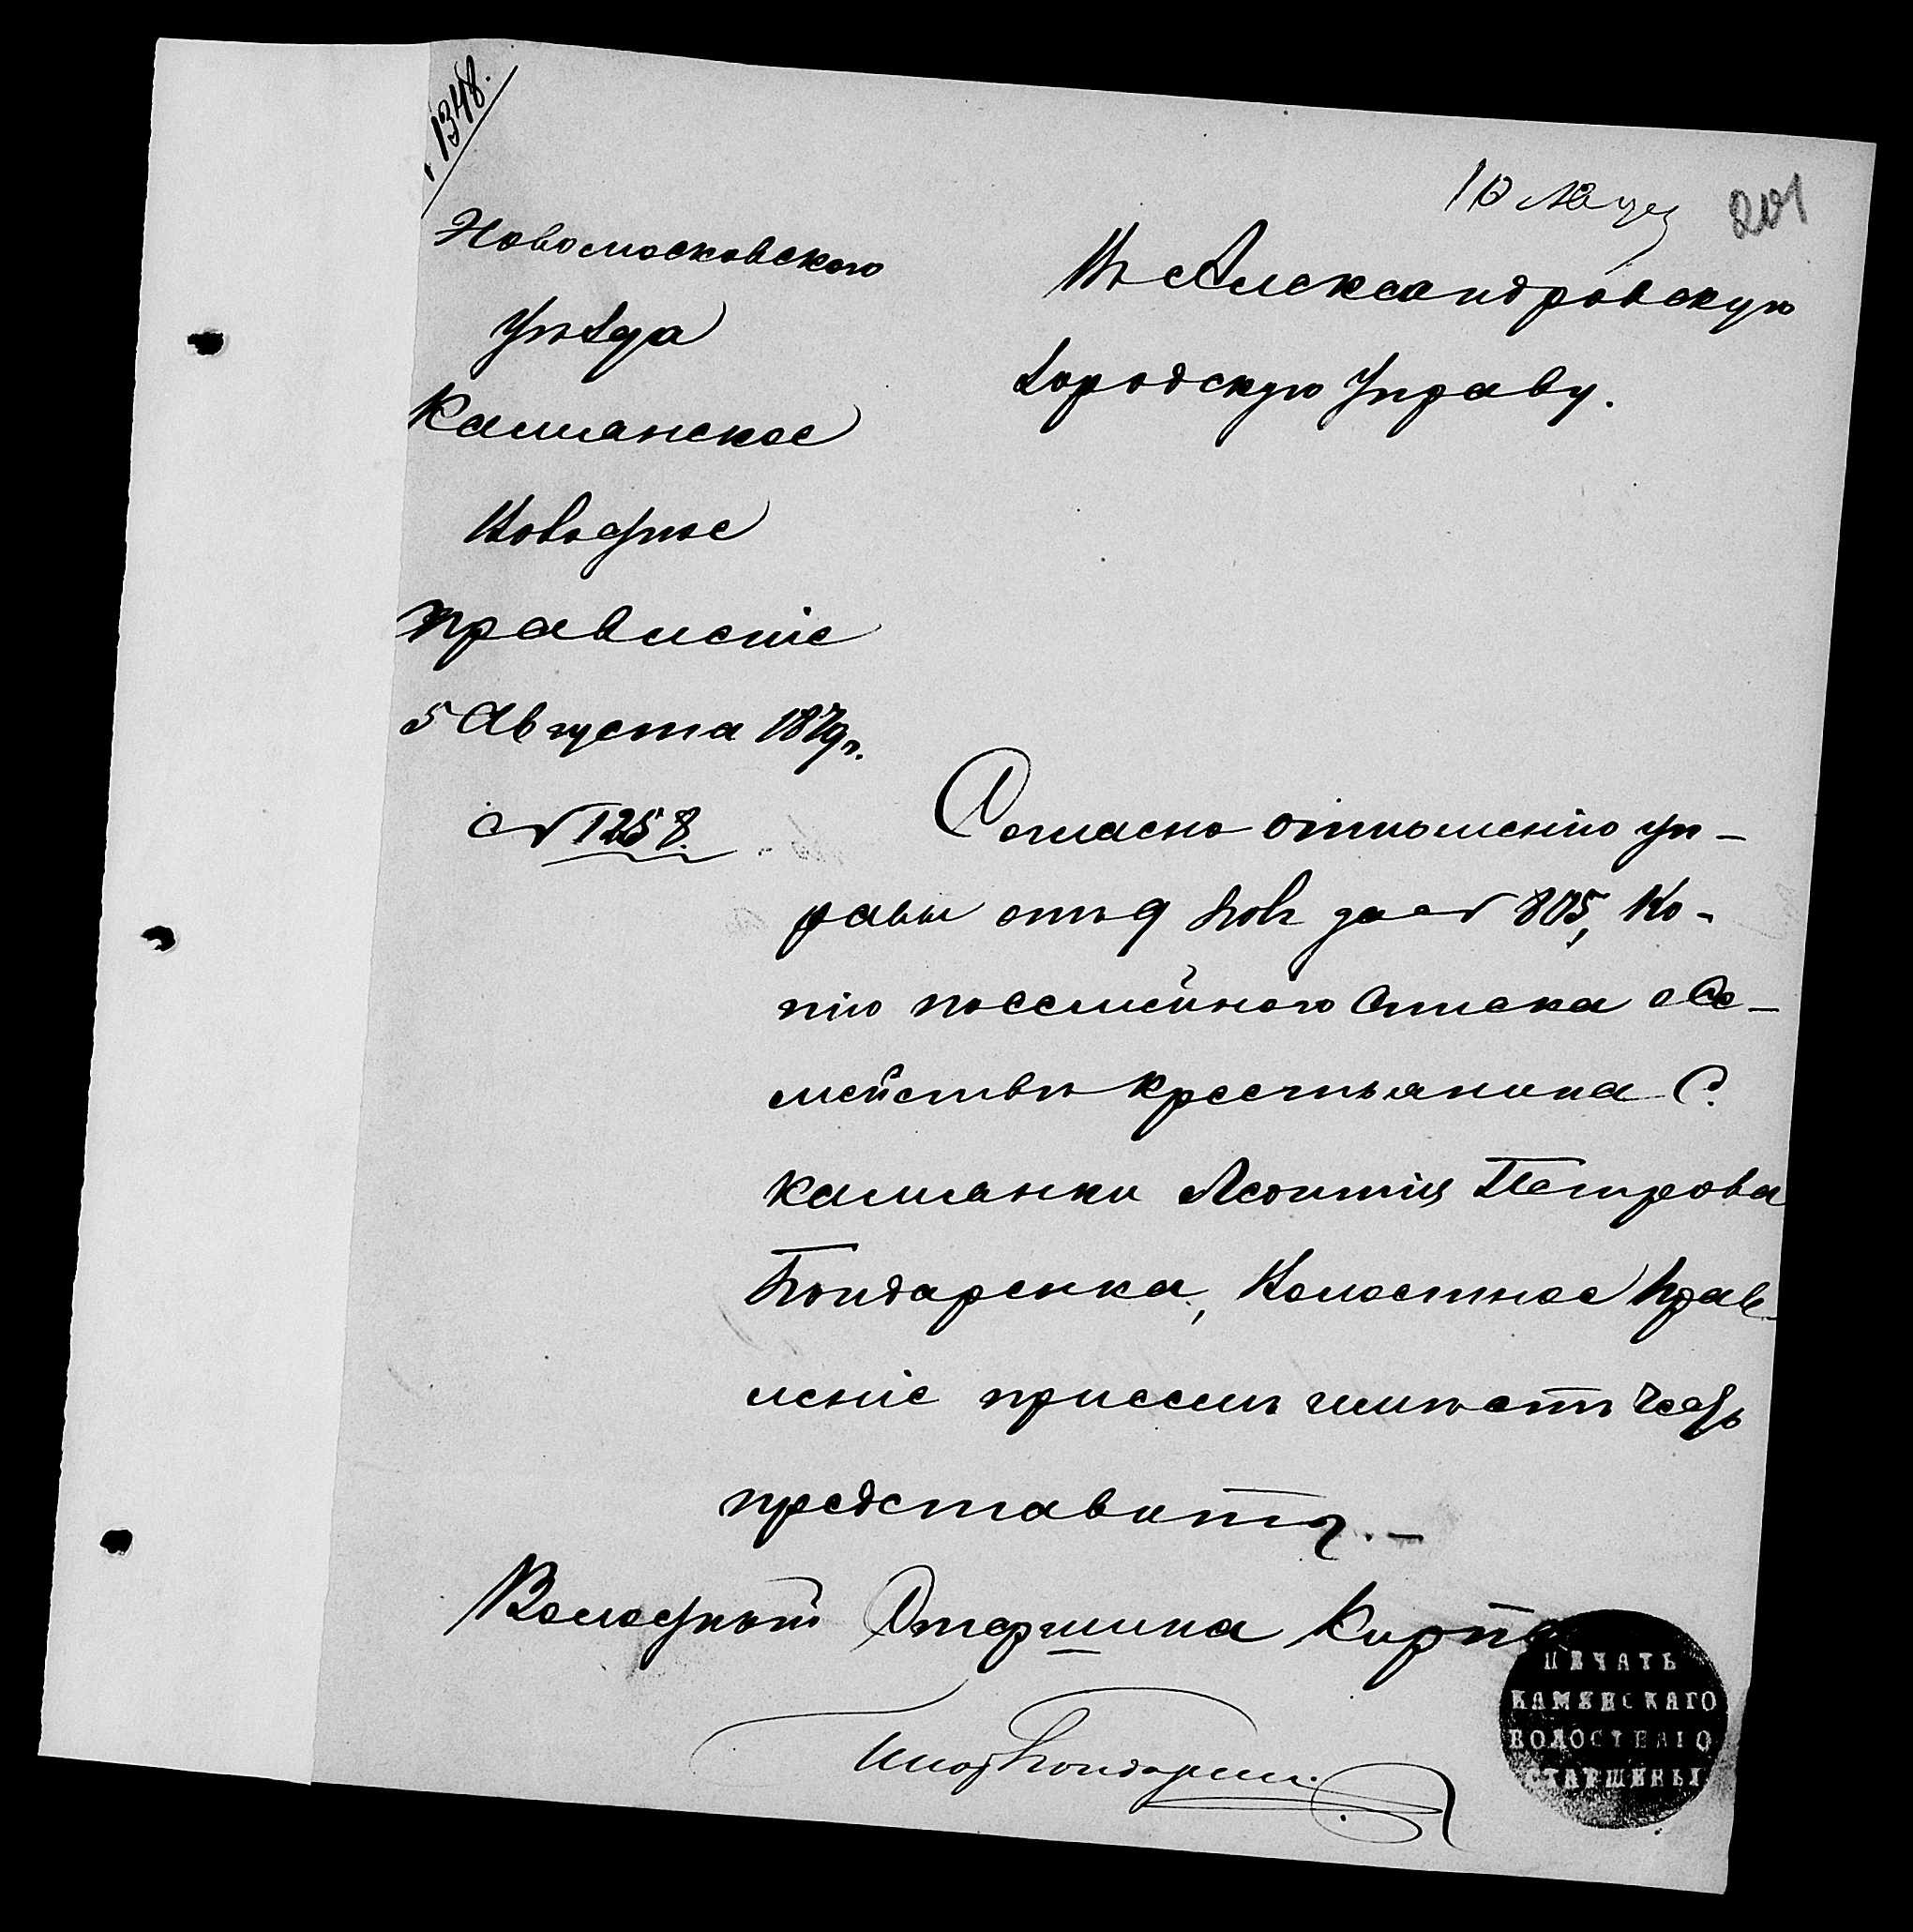 1348.
201
Новомосковского
Уѣзда
Каменское
Волостное
правленіе
5 Августа 1879 г.
№ 1258.
Въ Александровскую
Городскую Управу.
Согласно отношенію уп-
равы отъ 9 за № 805, Ко-
пію посемейного Списка о Се-
мействѣ крестьянина С.
Каменки Леонтія Петрова
Бондаренка, Волостное Прав-
леніе присемъ имѣетъ честь
представить. —
Волостной Старшина
ПЕЧАТЬ
КАМЕНСКАГО
ВОЛОСТНАГО
СТАРШИНЫ